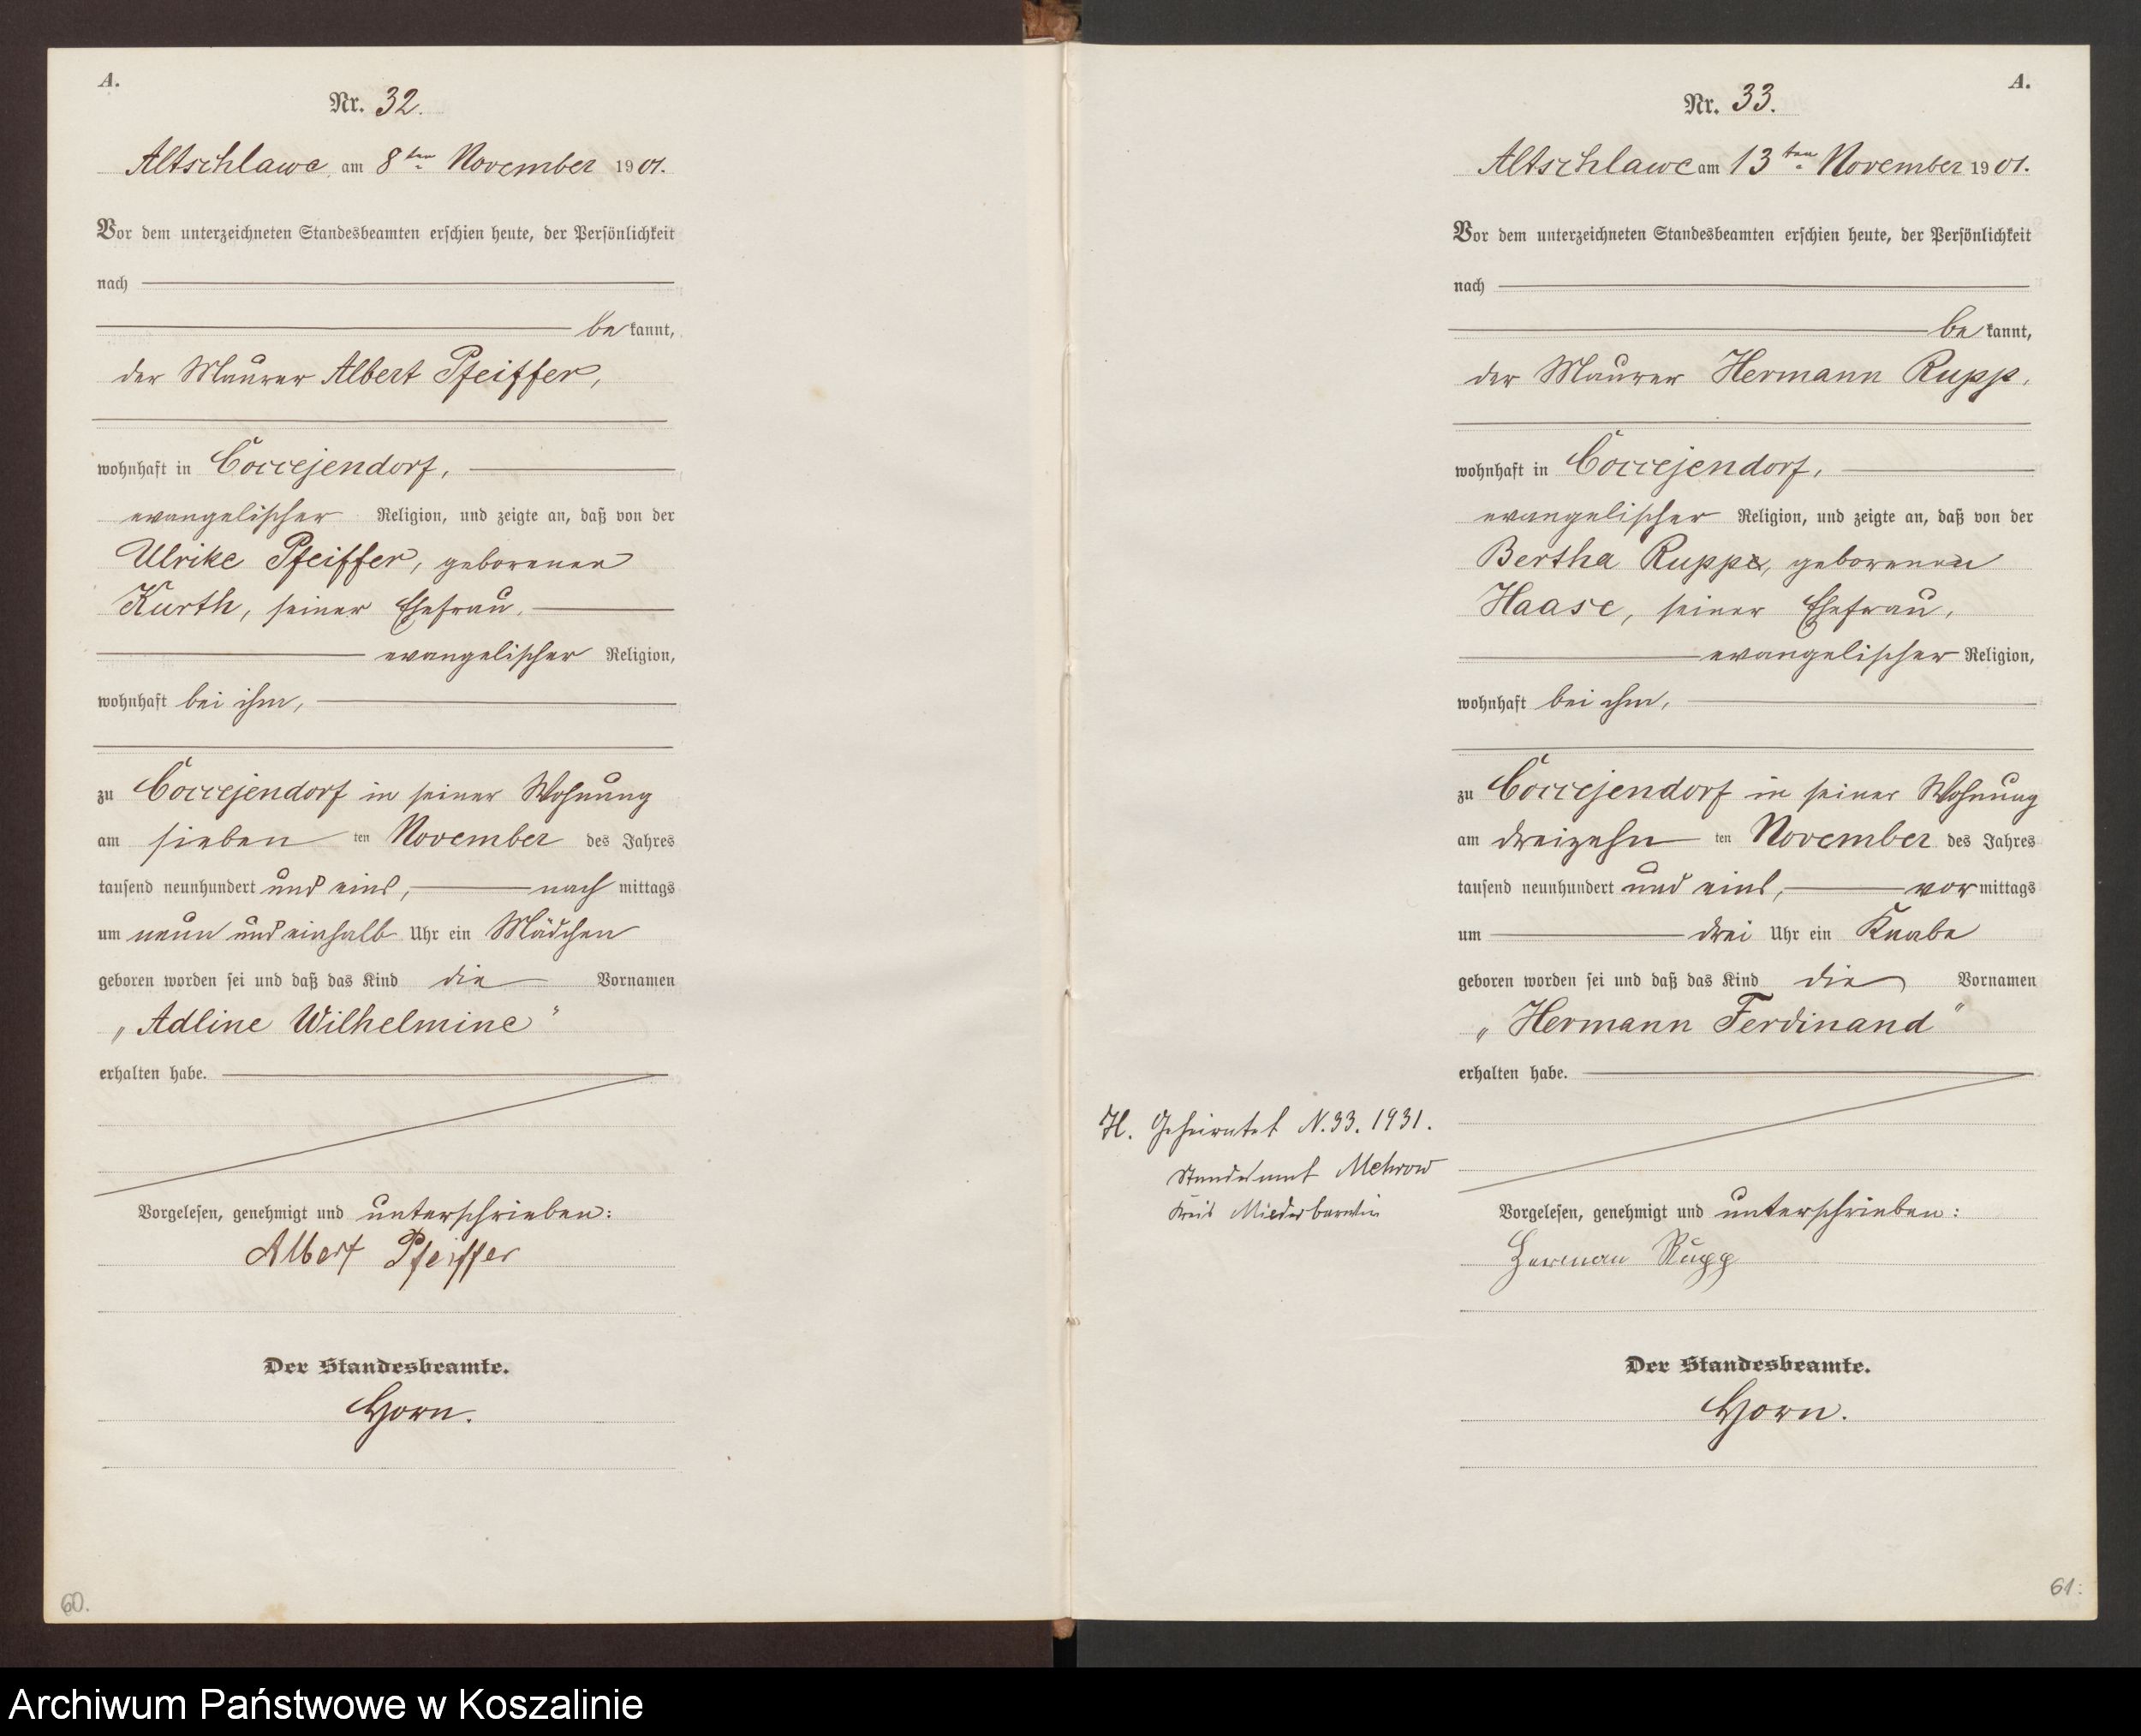 A.
Nr. 32.
Altschlawe, am 8ten November 1901.
Vor dem unterzeichneten Standesbeamten erschien heute, der Persönlichkeit
nach
be kannt,
der Maurer Albert Pfeiffer,
wohnhaft in Coccejendorf,
evangelischer Religion, und zeigte an, daß von der
Ulrike Pfeiffer, geborenen
Kurth, seiner Ehefrau,
evangelischer Religion,
wohnhaft bei ihm,
zu Coccejendorf in seiner Wohnung
am sieben ten November des Jahres
tausend neunhundert und eins, nach mittags
um neun und einhalb Uhr ein Mädchen
geboren worden sei und daß das Kind die Vornamen
„Adline Wilhelmine“
erhalten habe.
Vorgelesen, genehmigt und unterschrieben:
Albert Pfeiffer
Der Standesbeamte.
Horn.
60.
A.
Nr. 33.
Altschlawe am 13ten November 1901.
Vor dem unterzeichneten Standesbeamten erschien heute, der Persönlichkeit
nach
be kannt,
der Maurer Hermann Rupp,
wohnhaft in Coccejendorf,
evangelischer Religion, und zeigte an, daß von der
Bertha Rupp, geborenen
Haase, seiner Ehefrau,
evangelischer Religion,
wohnhaft bei ihm,
zu Coccejendorf in seiner Wohnung
am dreizehn ten November des Jahres
tausend neunhundert und eins, vor mittags
um drei Uhr ein Knabe
geboren worden sei und daß das Kind die Vornamen
„Hermann Ferdinand“
erhalten habe.
H. Geheiratet N. 33. 1931.
Standesamt Mehrow
Kreis Niederbarnim
Vorgelesen, genehmigt und unterschrieben:
Herman Rupp
Der Standesbeamte.
Horn.
61.
Archiwum Państwowe w Koszalinie